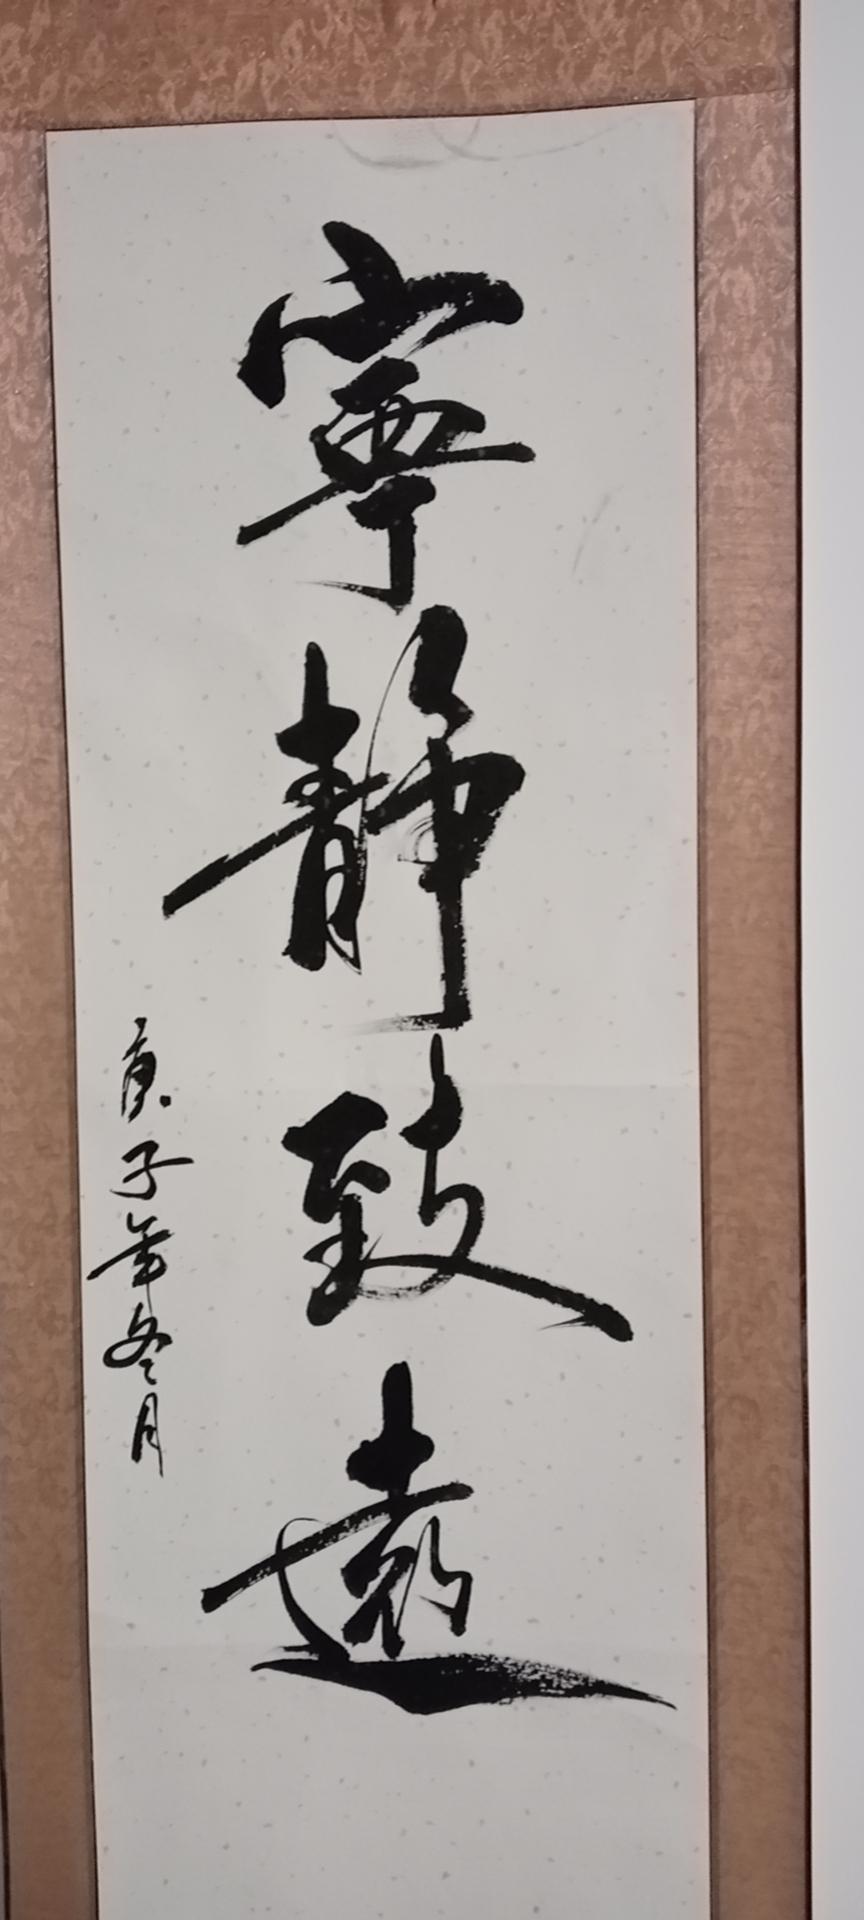 寧靜致遠
庚子年冬月